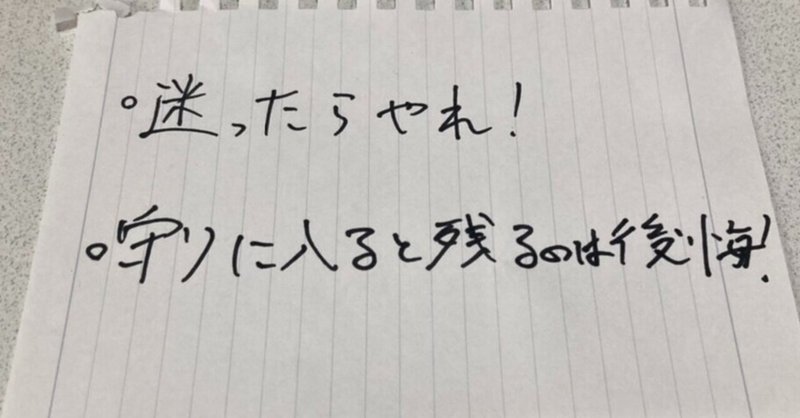 。迷ったらやれ!
。守りに入ると残るのは後悔!